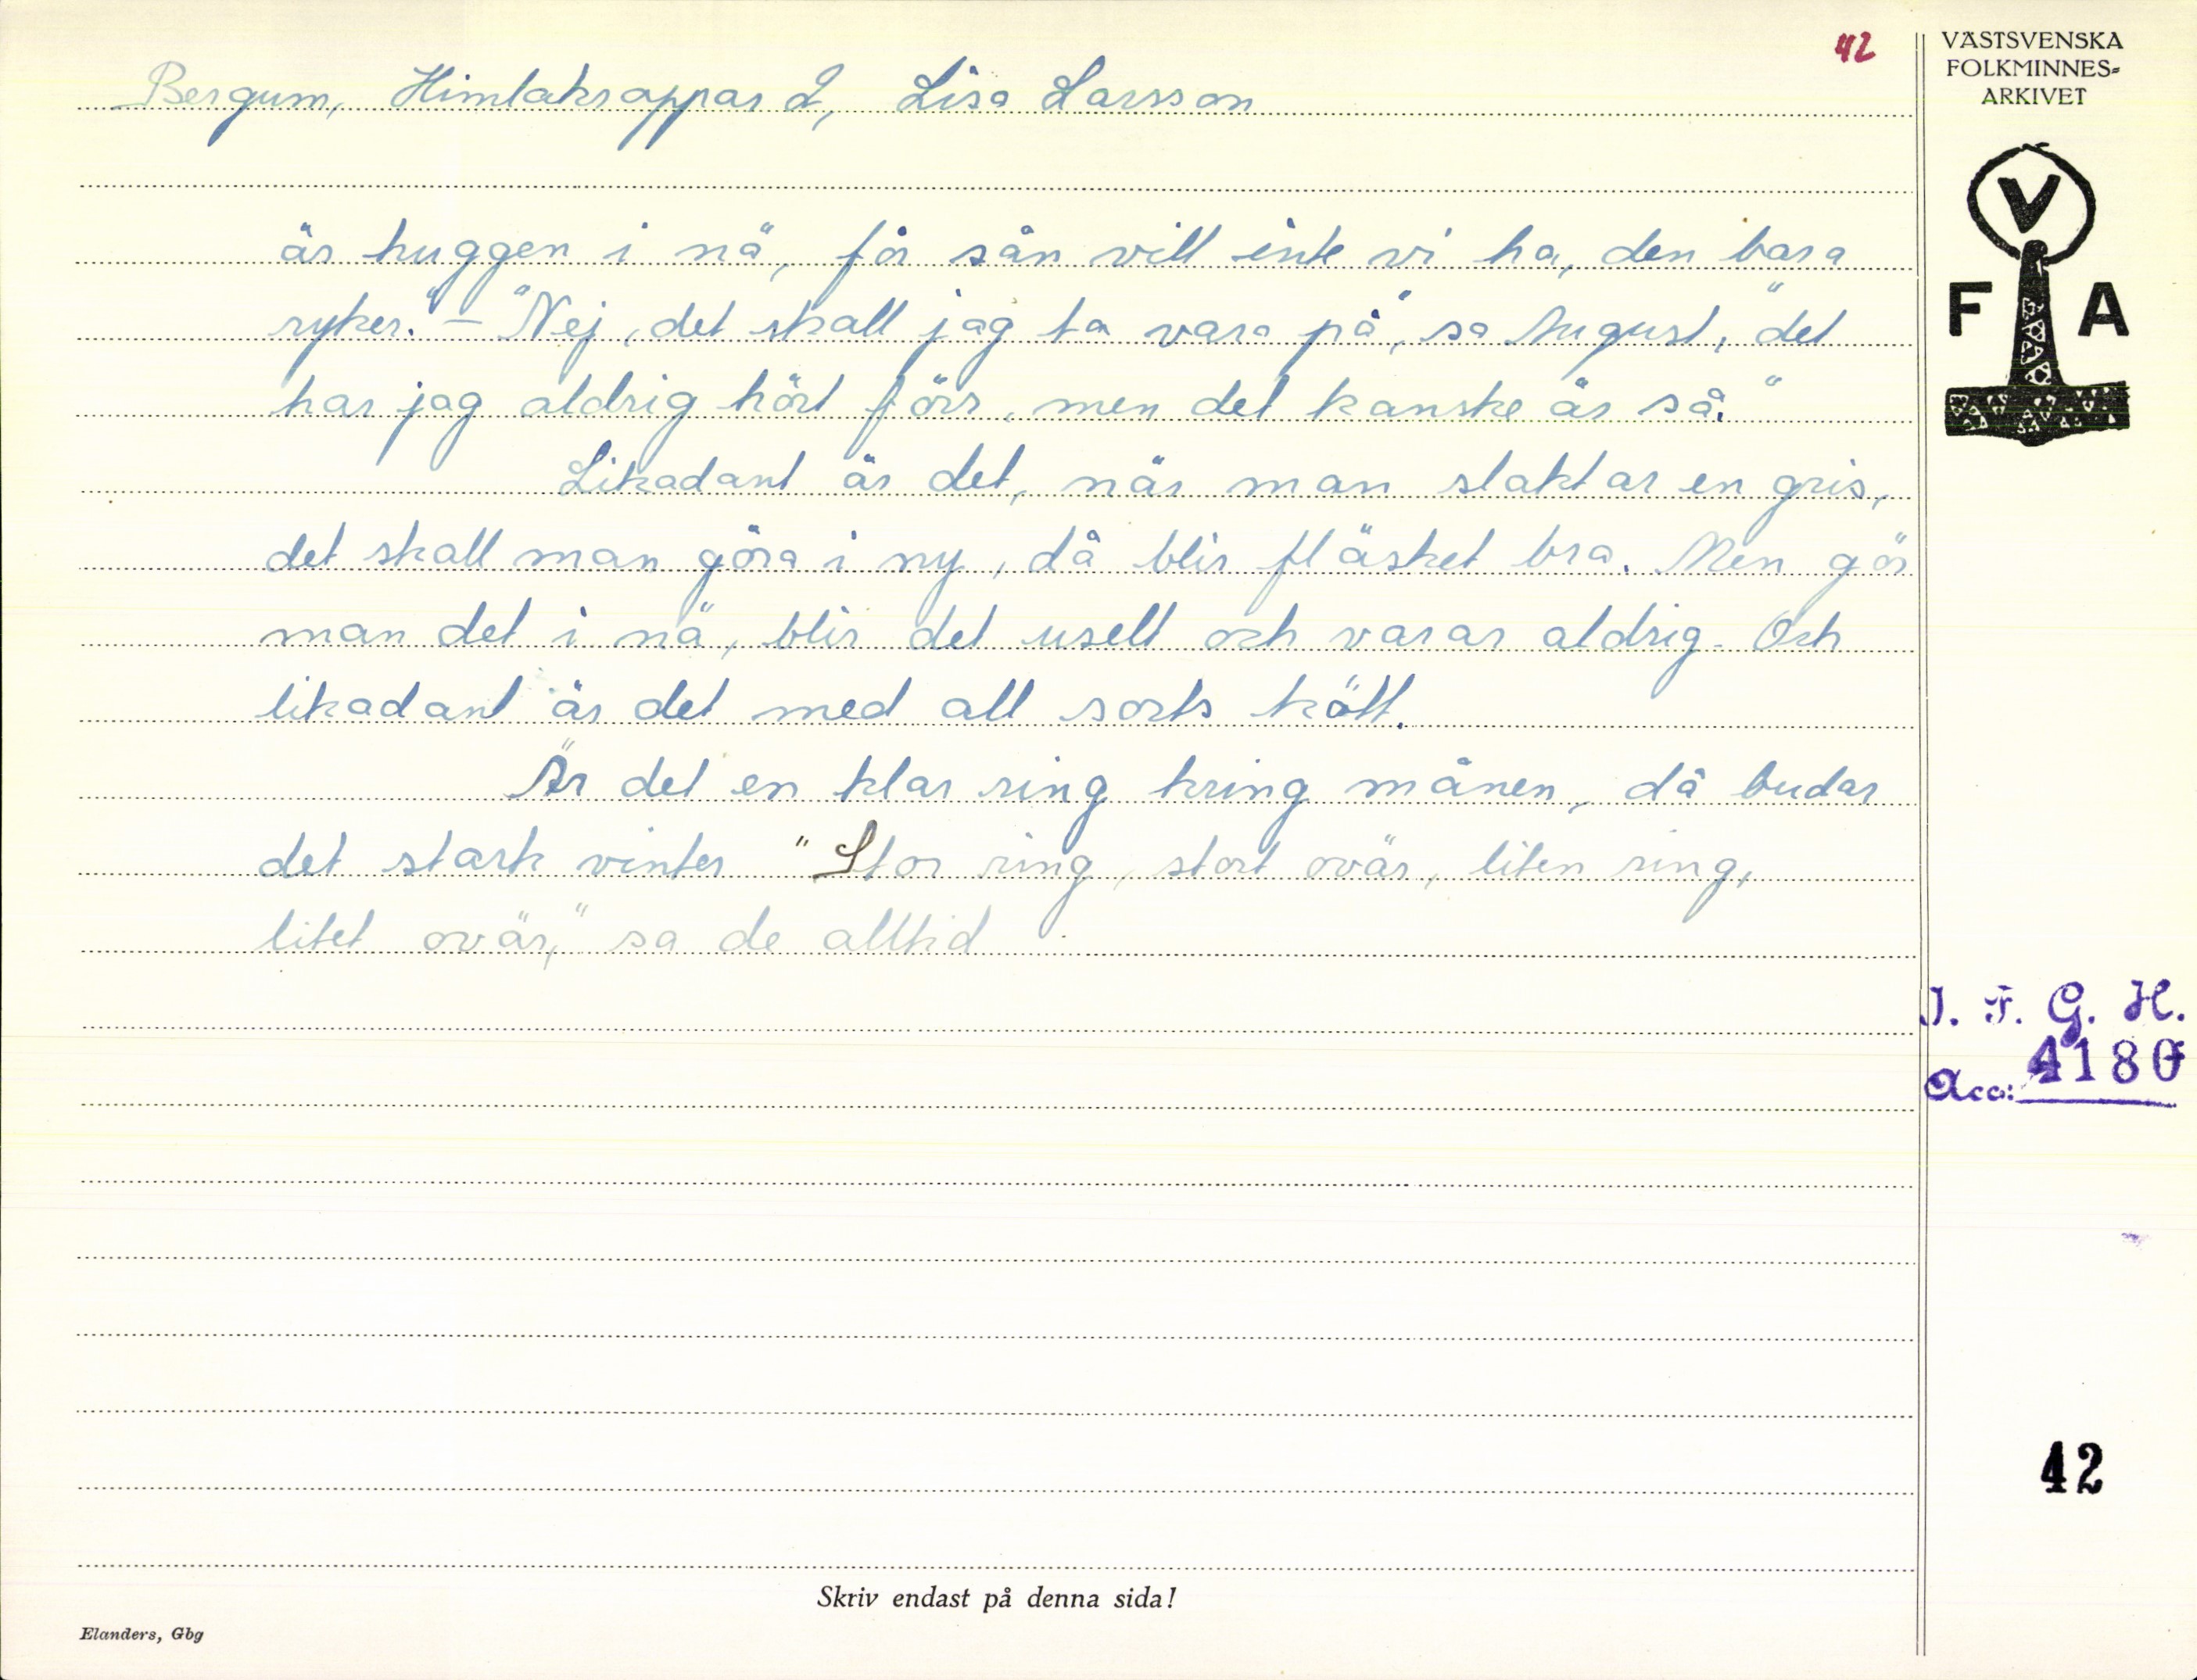 42
Bergum, Himlakroppar 2, Lisa Larsson
är huggen i nä, för sån vill inte vi ha, den bara
ryker." – "Nej, det skall jag ta vara på", sa August, "det
har jag aldrig hört förr, men det kanske är så."
Likadant är det, när man slaktar en gris,
det skall man göra i ny, då blir fläsket bra. Men gör
man det i nä, blir det uselt och varar aldrig. Och
likadant är det med all sorts kött.
Är det en klar ring kring månen, då budar
det stark vinter "Stor ring, stort ovär, liten ring,
litet ovär," sa de alltid.
VÄSTSVENSKA
FOLKMINNES-
ARKIVET
V
F A
I. F. G. H.
Acc: 4180
42
Skriv endast på denna sida!
Elanders, Gbg